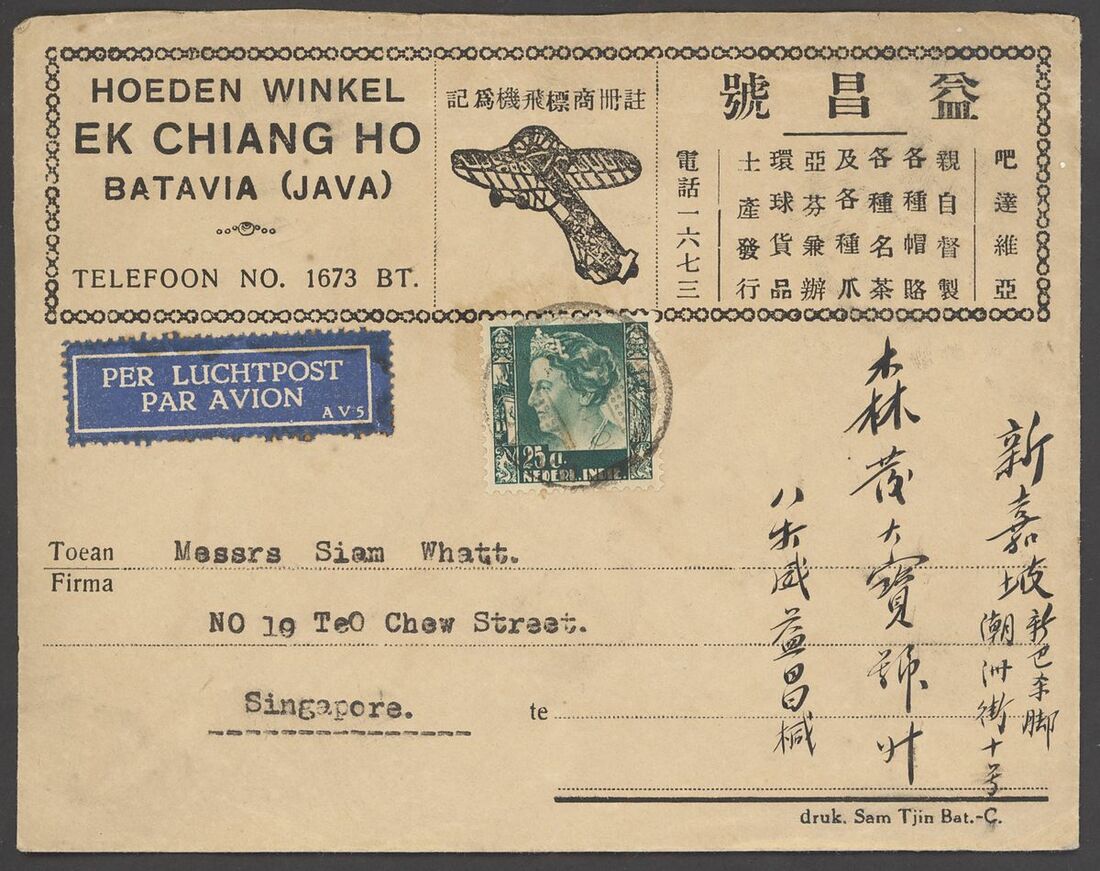 HOEDEN WINKEL
EK CHIANG HO
BATAVIA (JAVA)
TELEFOON NO. 1673 BT.
註冊商標飛機爲記
益昌號
吧達維亞
親自督製
各種帽胳
各種名茶
及各種爪
亞芬兼辦
環球貨品
土產發行
電話一六七三
PER LUCHTPOST
PAR AVION
AV5
25 c.
NEDERL. INDIE.
Toean Messrs Siam Whatt.
Firma
NO 10 TeO Chew Street.
Singapore.
te
新嘉坡
新巴杀脚
潮州街十号
森茂大寶號
益昌
druk. Sam Tjin Bat.-C.